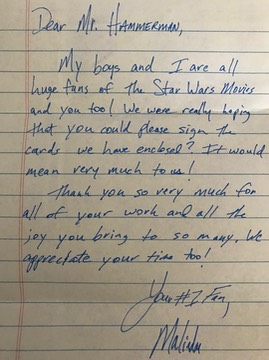 Dear Mr. Hammerman,
My boys and I are all
huge fans of the Star Wars Movies
and you too! We were really hoping
that you could please sign the
cards we have enclosed? It would
mean very much to us!
Thank you so very much for
all of your work and all the
joy you bring to so many. We
appreciate your time too!
Your #1 Fan,